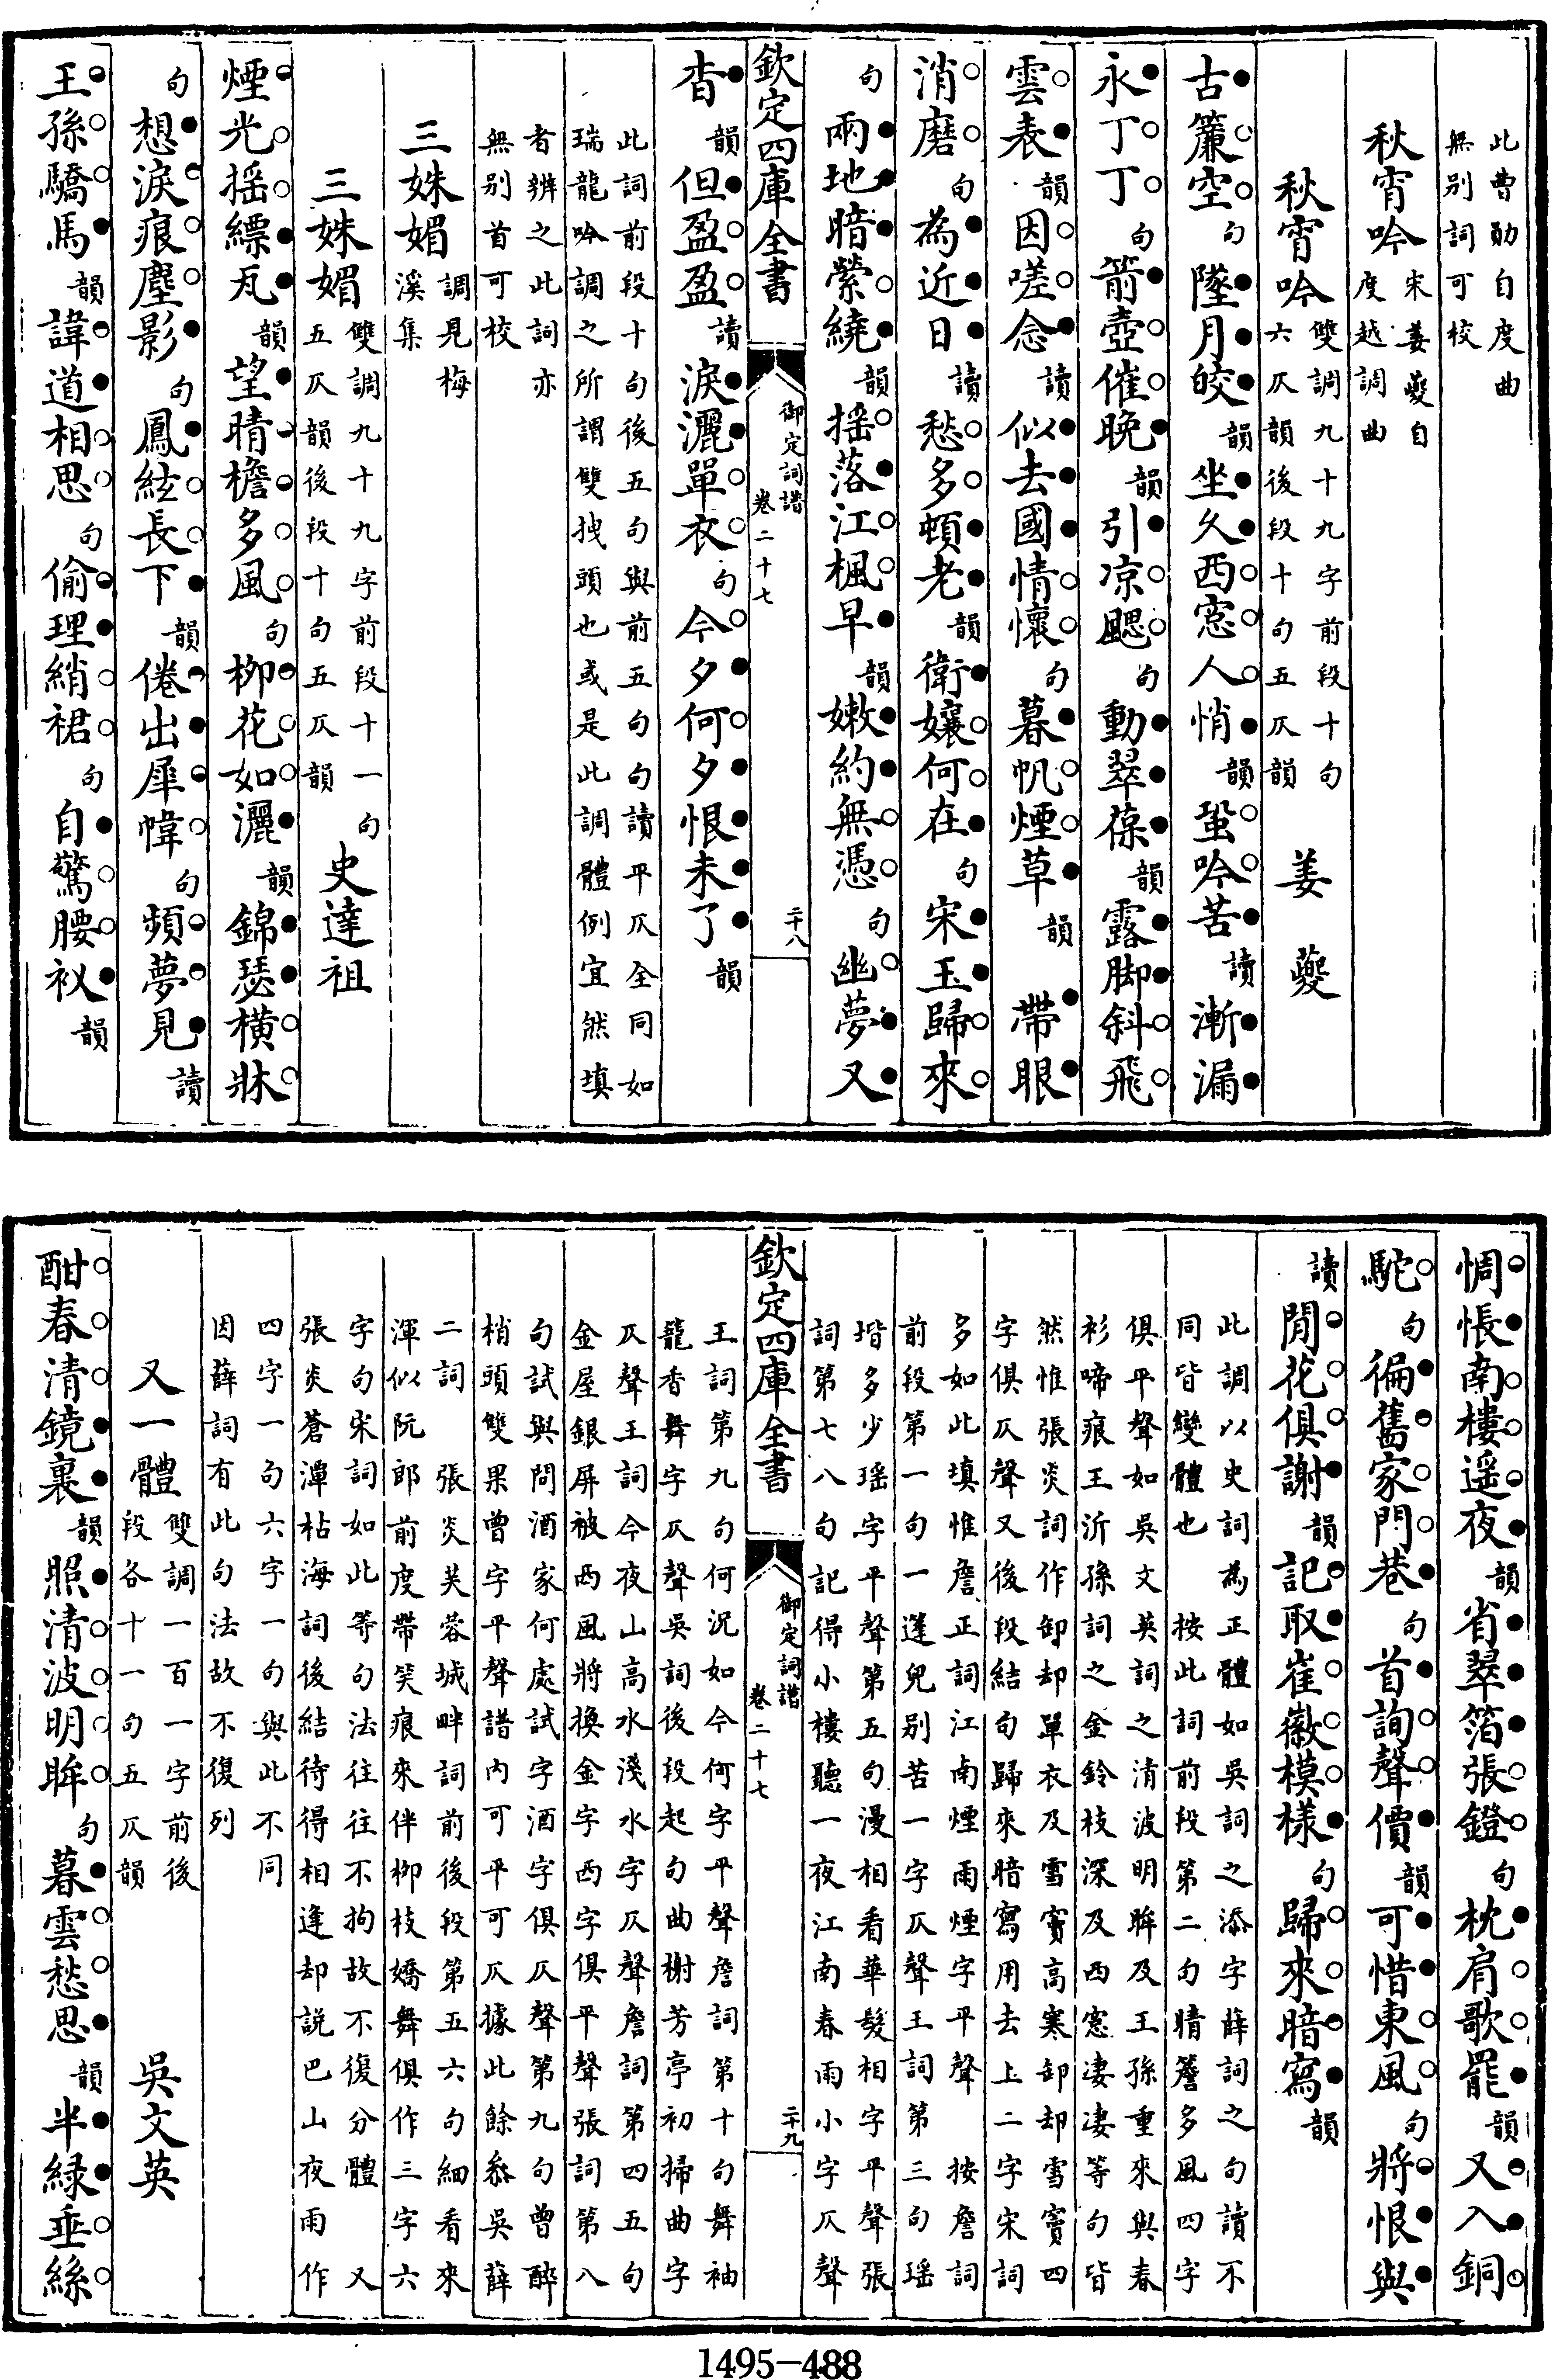 此曹勛自度曲
無别詞可校
秋宵吟宋姜夔自
度越調曲
秋宵吟雙調九十九字前段十句
六仄韻後段十句五仄韻 姜夔
古簾空句墜月皎韻坐久西窓人悄韻蛩吟苦讀漸漏
永丁丁句箭壺催晚韻引凉颸句動翠葆韻露脚斜飛
雲表韻因嗟念讀似去國情懷句暮帆煙草韻 帶眼
消磨句為近日讀愁多頓老韻衛孃何在句宋玉歸來
句兩地暗縈繞韻揺落江楓早韻嫩約無憑句幽夢又
欽定四庫全書 御定詞譜 卷二十七 二十八
杳韻但盈盈讀淚灑單衣句今夕何夕恨未了韻
此詞前段十句後五句與前五句句讀平仄全同如
瑞龍吟調之所謂雙拽頭也或是此調體例宜然填
者辨之此詞亦
無别首可校
三姝媚調見梅
溪集
三姝媚雙調九十九字前段十一句
五仄韻後段十句五仄韻 史達祖
煙光揺縹瓦韻望晴檐多風句柳花如灑韻錦瑟橫牀
句想淚痕塵影句鳳絃長下韻倦出犀幃句頻夢見讀
王孫驕馬韻諱道相思句偷理綃裙句自驚腰衩韻
惆悵南樓遥夜韻省翠箔張鐙句枕肩歌罷韻又入銅
駝句徧舊家門巷句首詢聲價韻可惜東風句將恨與
讀閒花俱謝韻記取崔徽模様句歸來暗寫韻
此調以史詞為正體如吳詞之添字薛詞之句讀不
同皆變體也 按此詞前段第二句晴簷多風四字
俱平聲如吳文英詞之清波明眸及王孫重來與春
衫啼痕王沂孫詞之金鈴枝深及西窓凄凄等句皆
然惟張炎詞作卸却單衣及雪竇高寒卸却雪竇四
字俱仄聲又後段結句歸來暗寫用去上二字宋詞
多如此填惟詹正詞江南煙雨煙字平聲 按詹詞
前段第一句一蓬兒别苦一字仄聲王詞第三句瑶
堦多少瑶字平聲第五句漫相看華髮相字平聲張
詞第七八句記得小樓聽一夜江南春雨小字仄聲
欽定四庫全書 御定詞譜 卷二十七 二十九
王詞第九句何況如今何字平聲詹詞第十句舞袖
籠香舞字仄聲吳詞後段起句曲榭芳亭初掃曲字
仄聲王詞今夜山高水淺水字仄聲詹詞第四五句
金屋銀屏被西風將換金字西字俱平聲張詞第八
句試與問酒家何處試字酒字俱仄聲第九句曾醉
梢頭雙果曾字平聲譜内可平可仄據此餘叅吳薛
二詞 張炎芙蓉城畔詞前後段第五六句細看來
渾似阮郎前度帶笑痕來伴柳枝嬌舞俱作三字六
字句宋詞如此等句法往往不拘故不復分體 又
張炎蒼潭枯海詞後結待得相逢却説巴山夜雨作
四字一句六字一句與此不同
因薛詞有此句法故不復列
又一體雙調一百一字前後
段各十一句五仄韻 吳文英
酣春清鏡裏韻照清波明眸句暮雲愁思韻半緑垂絲
1495-488